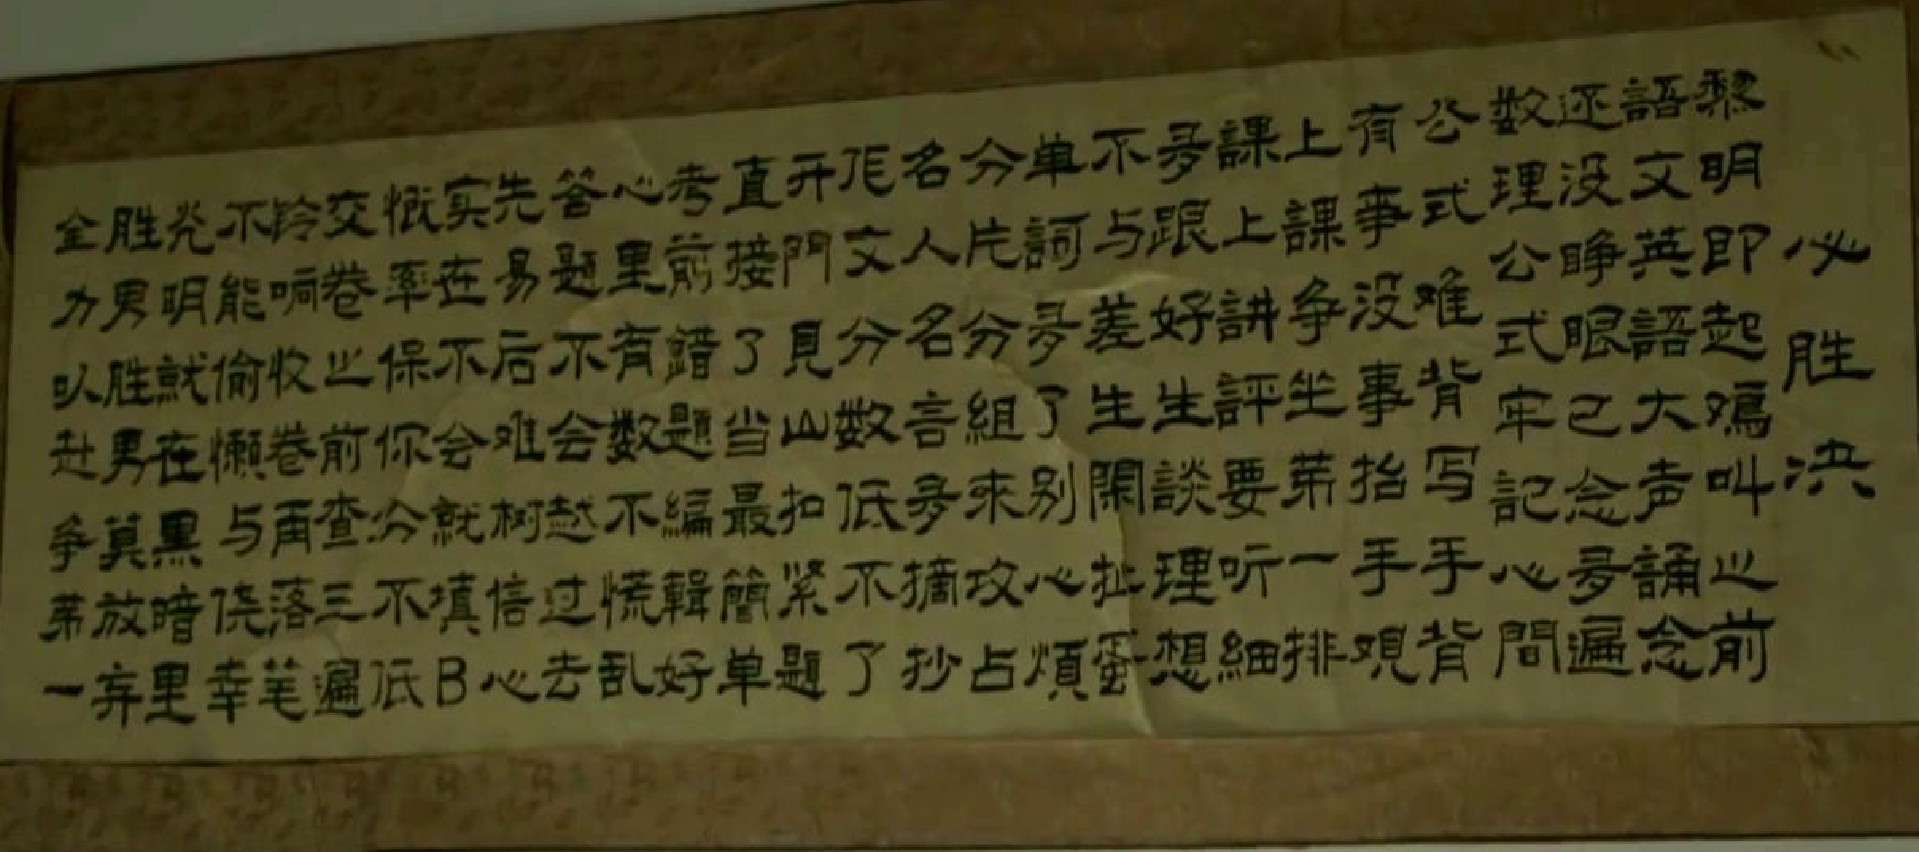 必胜决
黎明即起鳮叫之前
語文英語大声誦念
还没睁眼已念多遍
数理公式牢記心間
公式难背写手背
有事没事抬手观
上課争坐第一排
課上講評要听細
多跟好生談理想
不与差生閑扯蛋
单詞多了别心煩
分片分組来攻占
名人名言多摘抄
作文分数低不了
开門見山扣紧題
直接了当最簡单
考前錯題編輯好
心里有数不慌乱
答題不会越过去
先易后难树信心
实在不会就填B
概率保你分不低
交卷之前查三遍
鈴响收卷再落笔
不能偷懒与侥幸
光明就在黑暗里
胜男胜男莫放弃
全力以赴争第一